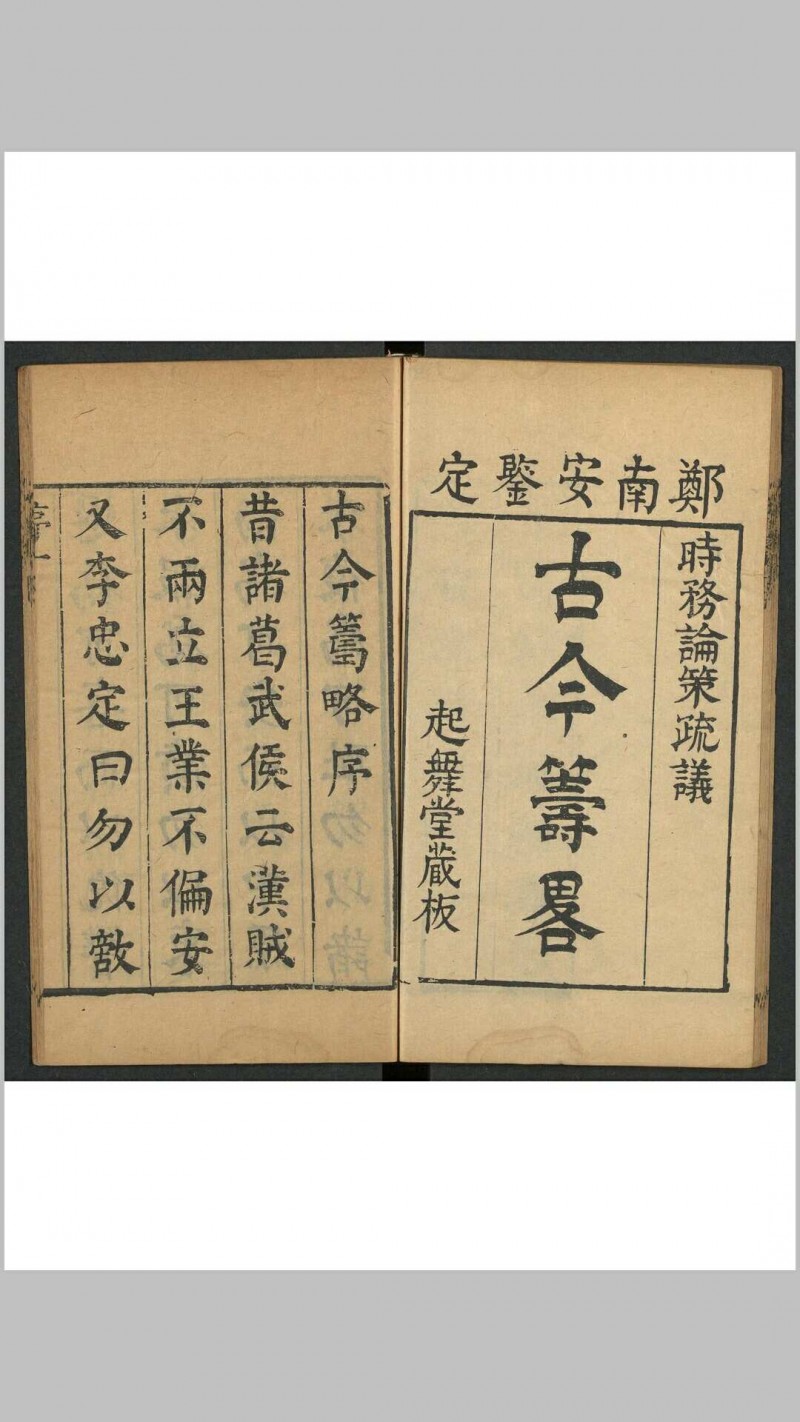 鄭南安鑒定
時務論策疏議
古今籌畧
起舞堂蔵板
古今籌略序
昔諸葛武侯云漢賊
不兩立王業不偏安
又李忠定曰勿以敵